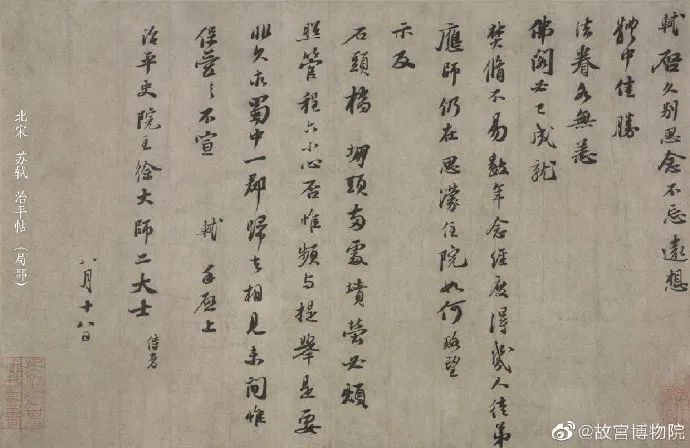 軾啓久別思念不忘遠想
體中佳勝
法眷各無恙
佛閣必已成就
焚脩不易數年念經度得幾人徒弟
應師仍在思濛住院如何略望
示及
石頭橋 堋頭兩處墳塋必煩
照管程六小心否惟頻與提舉是要
非久求蜀中一郡歸去相見未間惟
保愛之不宣 軾 手啓上
治平史院主徐大師二大士 侍者
八月十八日
北宋 苏轼 治平帖 (局部)
@故宫博物院